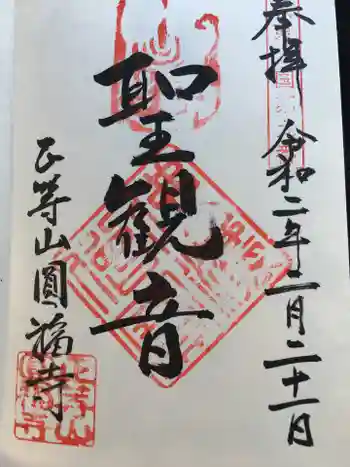 奉拝 令和二年二月二十一日
聖観音
正等山圓福寺